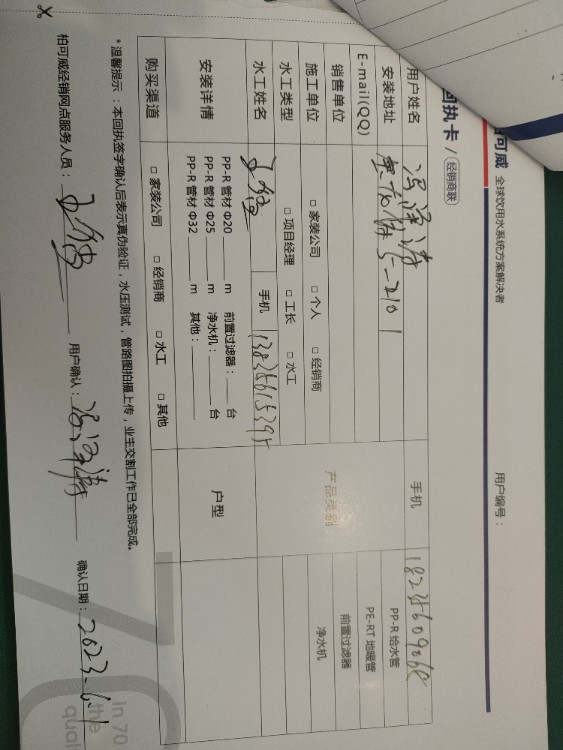 可威 全球饮用水系统方案解决者 用户编号：
回执卡 / 经销商联
用户姓名 手机
安装地址 5-2101 PP-R 给水管
E-mail(QQ) PE-RT 地暖管
销售单位 产品类别 前置过滤器
施工单位 □ 家装公司 □ 个人 □ 经销商 净水机
水工类型 □ 项目经理 □ 工长 □ 水工
水工姓名 手机
安装详情 PP-R 管材 Φ20 m 前置过滤器： 台 户型
PP-R 管材 Φ25 m 净水机： 台
PP-R 管材 Φ32 m 其他：
购买渠道 □ 家装公司 □ 经销商 □ 水工 □ 其他
*温馨提示：本回执签字确认后表示真伪验证，水压测试，管路图拍摄上传，业主交割工作已全部完成。
柏可威经销网点服务人员： 用户确认： 确认日期：2023.
in 70
the
qual